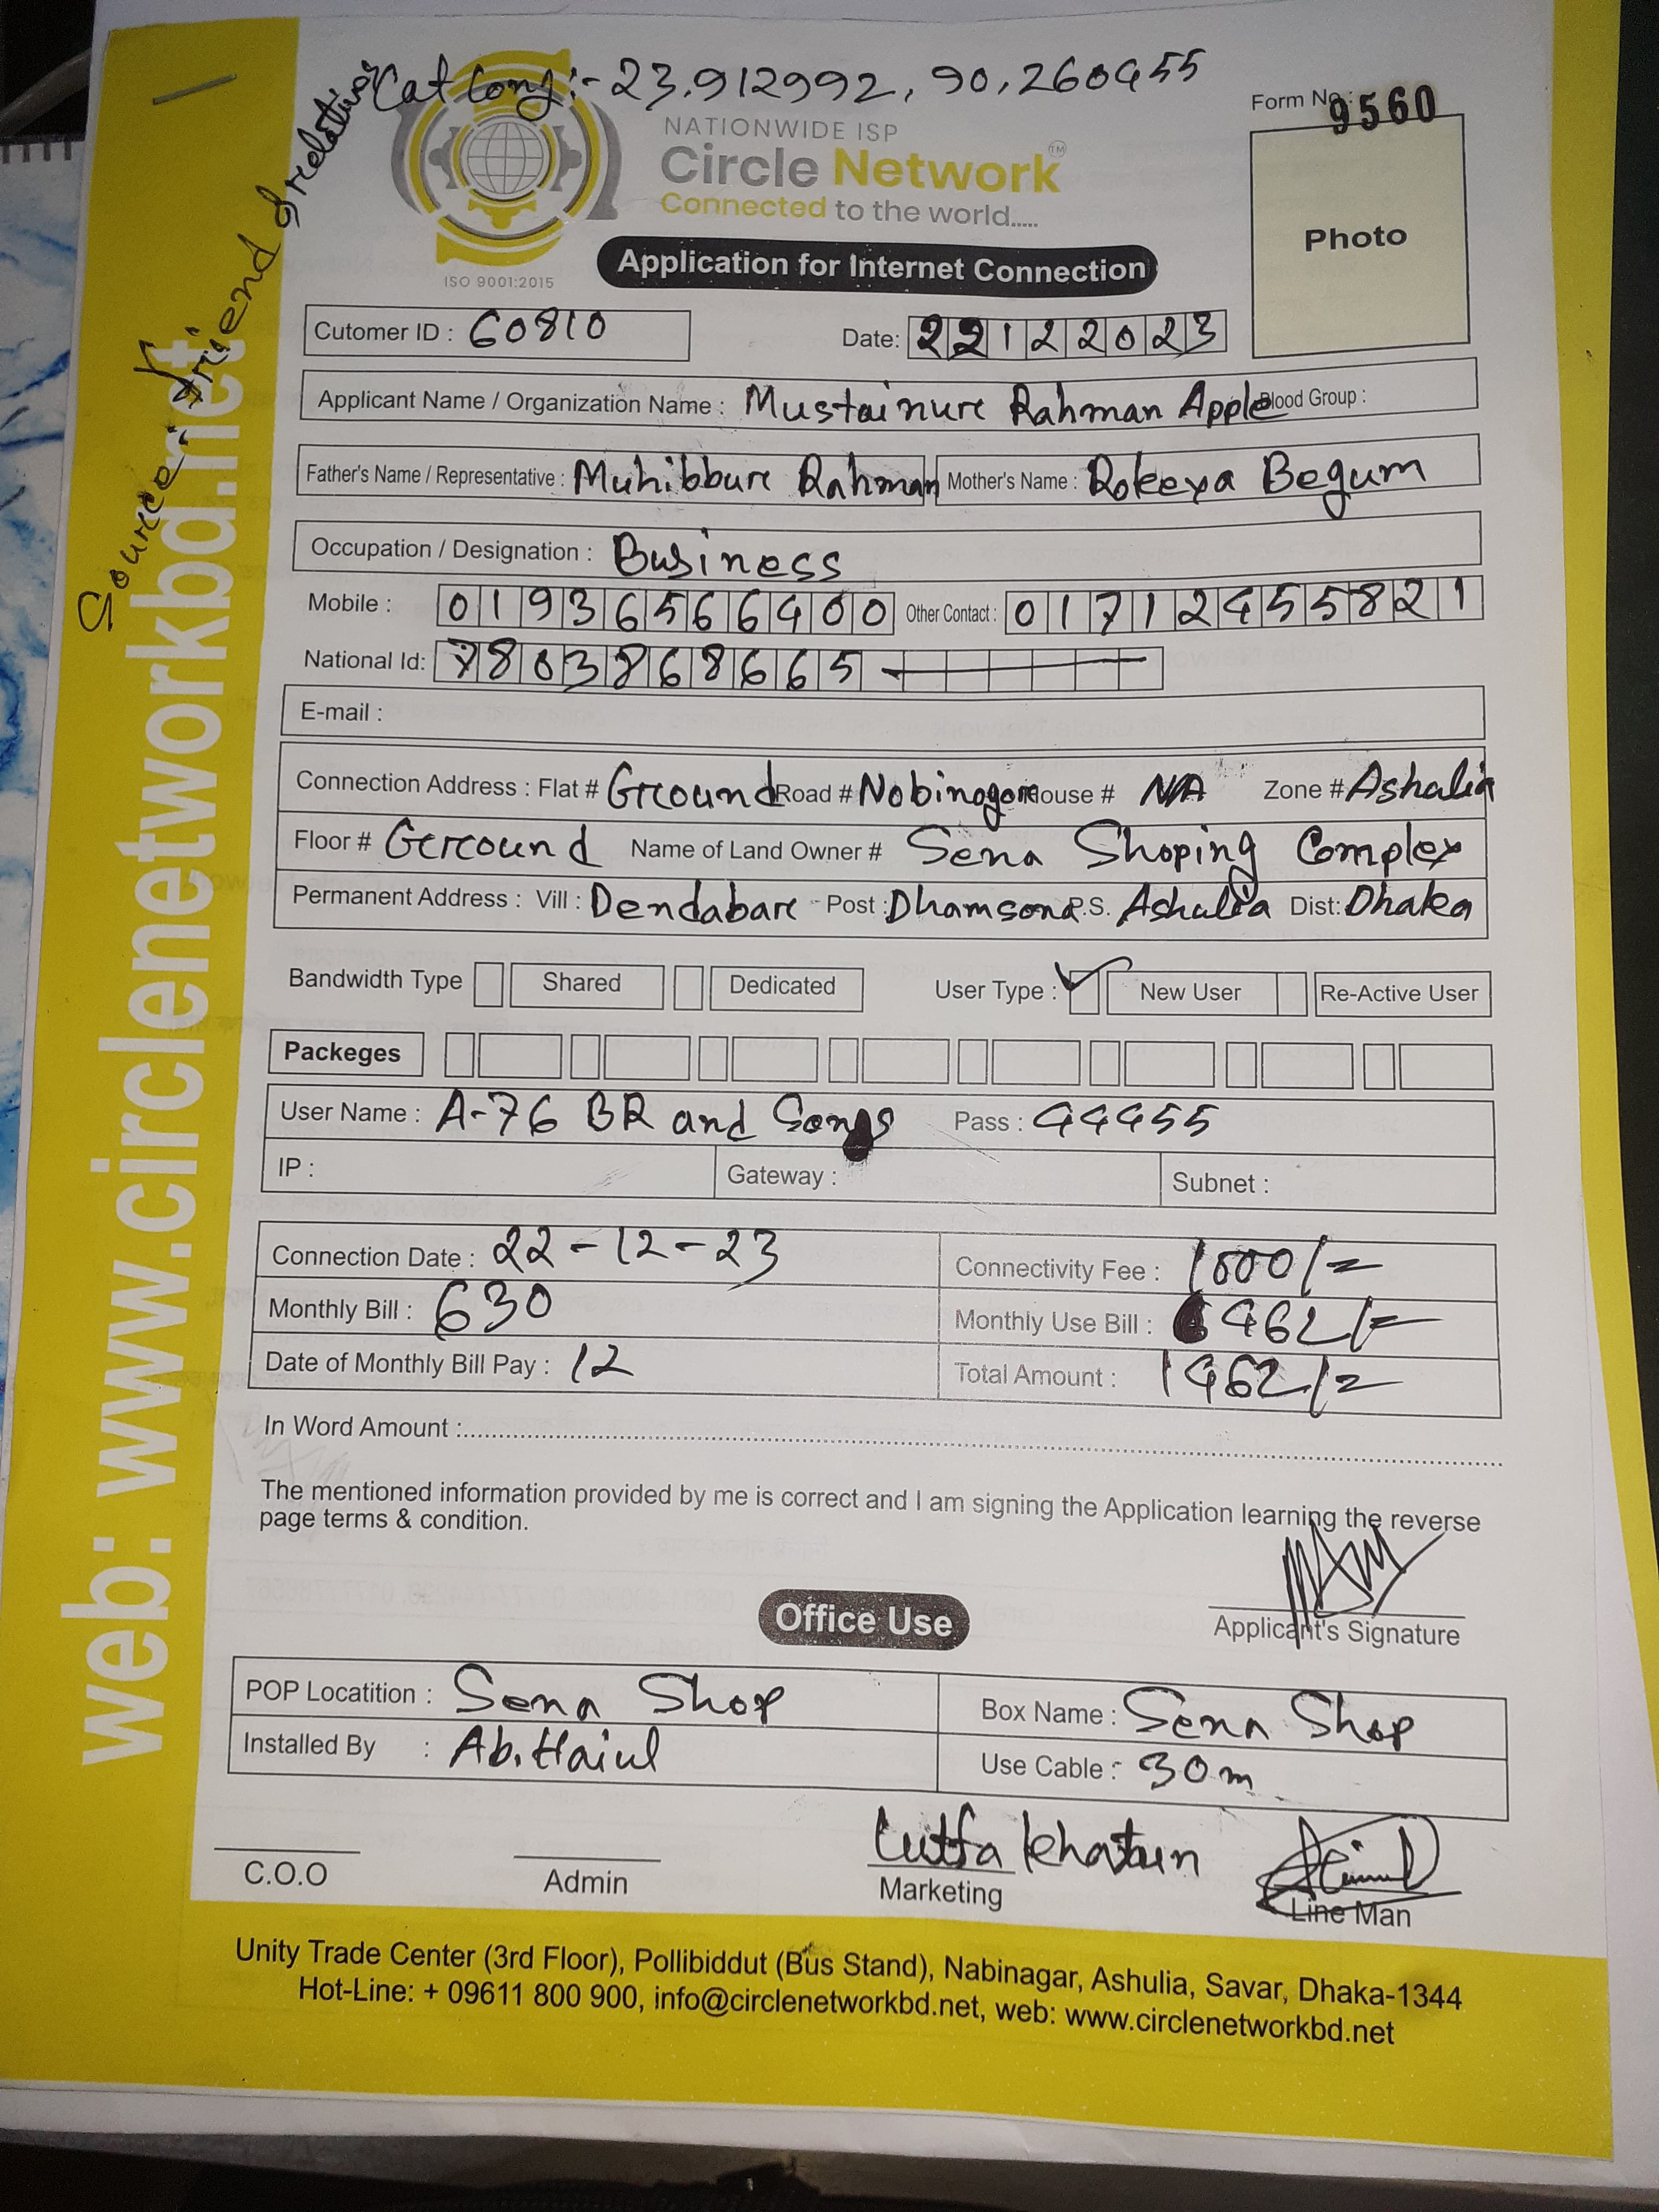 Lat Long:- 23.912992, 90.260455
Source: Friend & relative
Form No.: 9560
NATIONWIDE ISP
Circle Network TM
Connected to the world.....
ISO 9001:2015
Photo
Application for Internet Connection
Cutomer ID : 60810 Date: 22122023
Applicant Name / Organization Name : Mustainur Rahman Apple Blood Group :
Father's Name / Representative : Muhibbur Rahman Mother's Name : Rokeya Begum
Occupation / Designation : Business
Mobile : 01936566400 Other Contact : 01712455821
National Id: 7803868665
E-mail :
Connection Address : Flat # Ground Road # Nobinogor House # N/A Zone # Ashalia
Floor # Ground Name of Land Owner # Sena Shoping Complex
Permanent Address : Vill : Dendabar Post : Dhamsona P.S. Ashulia Dist: Dhaka
Bandwidth Type Shared Dedicated User Type : New User Re-Active User
Packeges
User Name : A-76 BR and Sons Pass : 44455
IP : Gateway : Subnet :
Connection Date : 22-12-23 Connectivity Fee : 1000/=
Monthly Bill : 630 Monthly Use Bill : 462/=
Date of Monthly Bill Pay : 12 Total Amount : 1462/=
In Word Amount :
The mentioned information provided by me is correct and I am signing the Application learning the reverse
page terms & condition.
Applicant's Signature
Office Use
POP Locatition : Sena Shop Box Name : Sena Shop
Installed By : Ab. Haiul Use Cable : 30m
Lutfa Khatun
C.O.O Admin Marketing Line Man
Unity Trade Center (3rd Floor), Pollibiddut (Bus Stand), Nabinagar, Ashulia, Savar, Dhaka-1344
Hot-Line: + 09611 800 900, info@circlenetworkbd.net, web: www.circlenetworkbd.net
web: www.circlenetworkbd.net